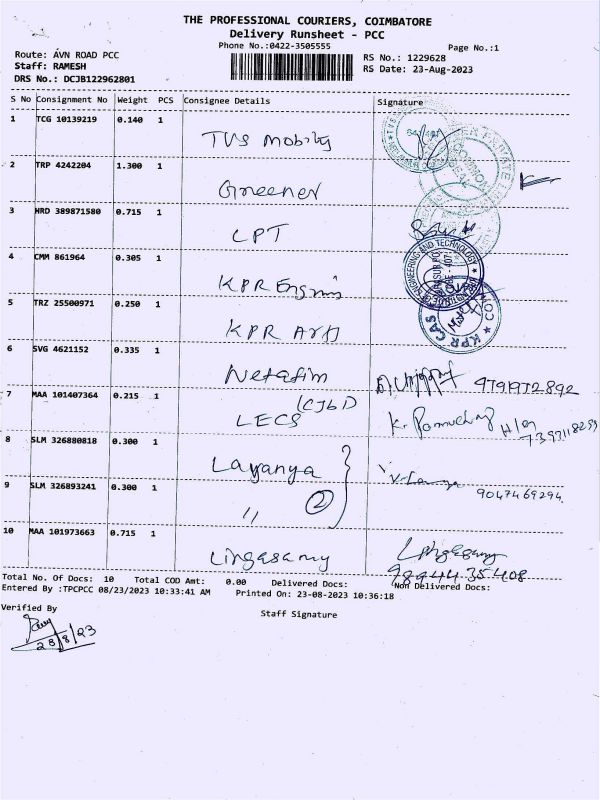 THE PROFESSIONAL COURIERS, COIMBATORE
Delivery Runsheet - PCC
Phone No.:0422-3505555
Page No.:1
Route: AVN ROAD PCC
RS No.: 1229628
Staff: RAMESH
RS Date: 23-Aug-2023
DRS No.: DCJB122962801
S No Consignment No Weight PCS Consignee Details Signature
1 TCG 10139219 0.140 1
TVS Mobility
2 TRP 4242204 1.300 1
Greener
3 HRD 389871580 0.715 1
LPT
4 CMM 861964 0.305 1
KPR Engning
5 TRZ 25500971 0.250 1
KPR Arts
KPR CAS
6 SVG 4621152 0.335 1
Netafim 9791972892
7 MAA 101407364 0.215 1
(CJB1)
LECS
8 SLM 326880818 0.300 1
Lavanya
9047469294
9 SLM 326893241 0.300 1
" (2)
10 MAA 101973663 0.715 1
Lingasamy Lingasamy
9894435408
Total No. Of Docs: 10 Total COD Amt: 0.00 Delivered Docs: Non Delivered Docs:
Entered By :TPCPCC 08/23/2023 10:33:41 AM Printed On: 23-08-2023 10:36:18
Verified By
Staff Signature
28/8/23